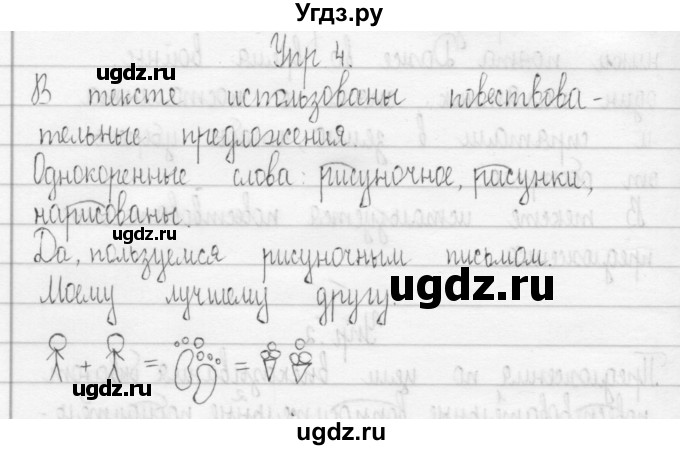 Угдз.ру
Упр 4.
В тексте использованы повествова-
тельные предложения.
Однокоренные слова: рисуночное, рисунки,
нарисованы.
Да, пользуемся рисуночным письмом.
Моему лучшему другу.
+ = =
ugdz.ru
ugdz.ru
ugdz.ru
ugdz.ru
ugdz.ru
ugdz.ru
ugdz.ru